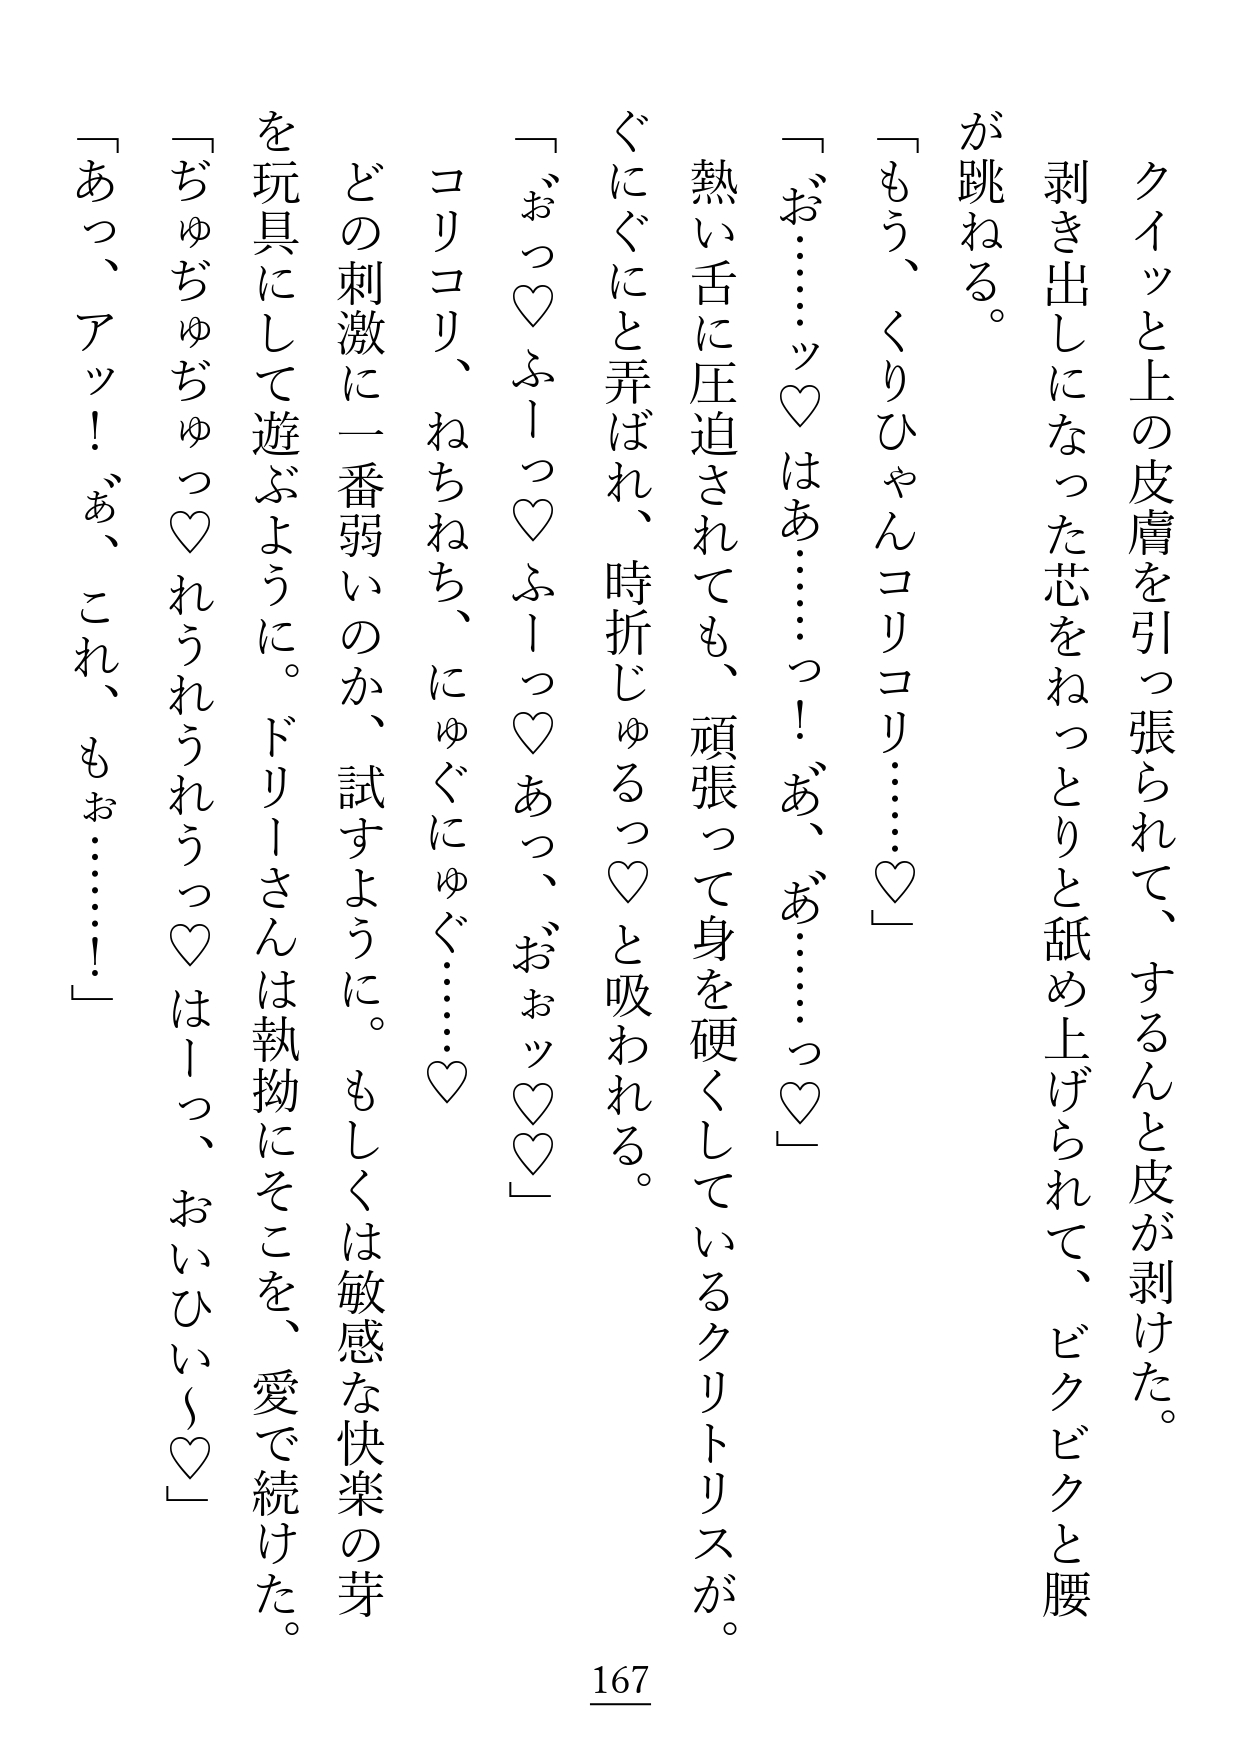 クイッと上の皮膚を引っ張られて、するんと皮が剥けた。
剥き出しになった芯をねっとりと舐め上げられて、ビクビクと腰
が跳ねる。
「もう、くりひゃんコリコリ……♡」
「お゛……ッ♡はあ……っ！あ゛、あ゛……っ♡」
熱い舌に圧迫されても、頑張って身を硬くしているクリトリスが。
ぐにぐにと弄ばれ、時折じゅるっ♡と吸われる。
「ぉ゛っ♡ふーっ♡ふーっ♡あっ、お゛ぉッ♡♡」
コリコリ、ねちねち、にゅぐにゅぐ……♡
どの刺激に一番弱いのか、試すように。もしくは敏感な快楽の芽
を玩具にして遊ぶように。ドリーさんは執拗にそこを、愛で続けた。
「ぢゅぢゅぢゅっ♡れうれうれうっ♡はーっ、おいひい～♡」
「あっ、アッ！ぁ゛、これ、もぉ……！」
167